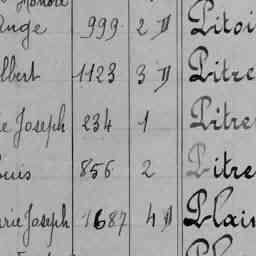 Honoré
Ange 999 2 D Pitoi
lbert 1123 3 D Pitre
ie Joseph 234 1 Pitre
ouis 856 2 Pitre
rie Joseph 1687 4 D Plai